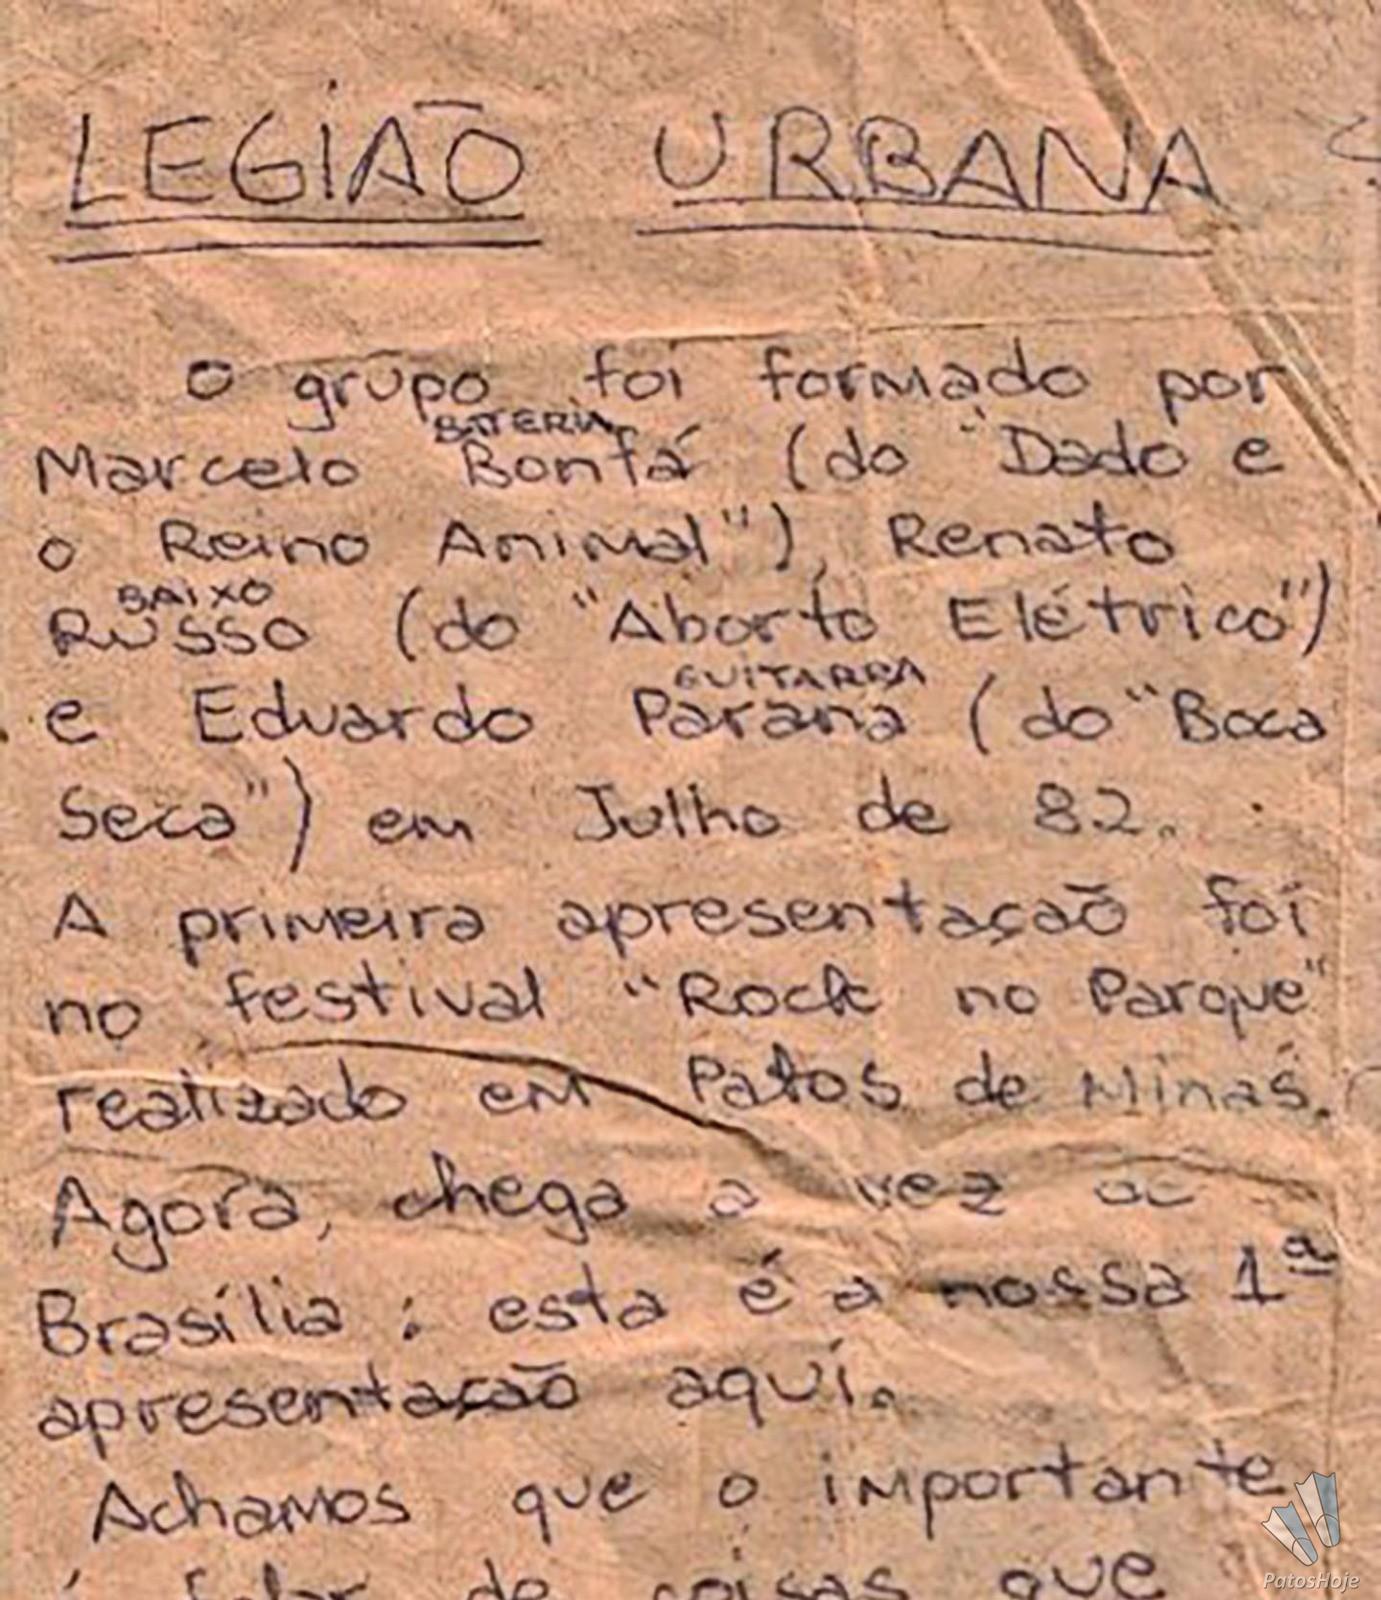 LEGIÃO URBANA
O grupo foi formado por
BATERIA
Marcelo Bonfá (do "Dado e
o Reino Animal"), Renato
BAIXO
Russo (do "Aborto Elétrico")
GUITARRA
e Eduardo Paraná (do "Boca
Seca") em Julho de 82.
A primeira apresentação foi
no festival "Rock no Parque"
realizado em Patos de Minas.
Agora, chega a vez de
Brasília: esta é a nossa 1ª
apresentação aqui.
Achamos que o importante
é falar de coisas que
PatosHoje